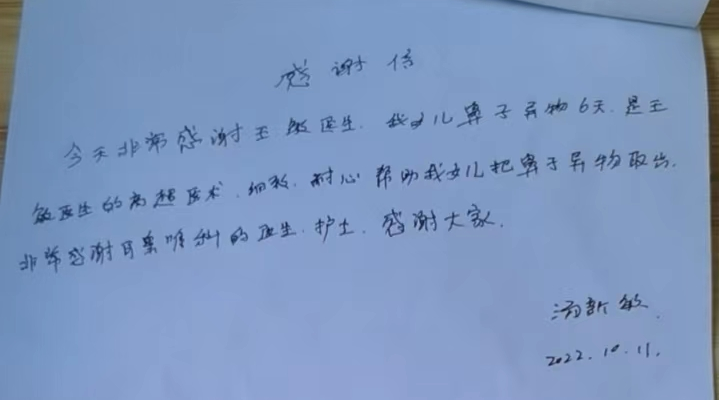 感谢信
今天非常感谢王敏医生.我女儿鼻子异物6天.是王
敏医生的高超医术.细致.耐心帮助我女儿把鼻子异物取出.
非常感谢耳鼻喉科的医生.护士.感谢大家.
汤新敏.
2022.10.11.